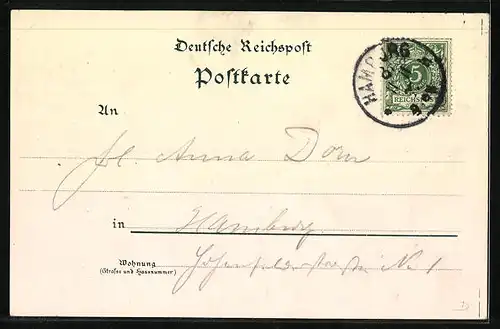 Deutsche Reichspost
Postkarte
HAMBURG
5
REICHSP
An
Fl. Anna Dorn
in Hamburg
Wohnung
(Strasse und Hausnummer)
No 1